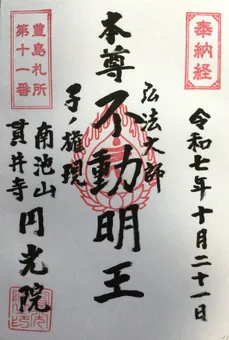 奉納経
令和七年十月二十一日
弘法大師
本尊 不動明王
子ノ権現
豊島札所
第十一番
南池山
貫井寺
円光院